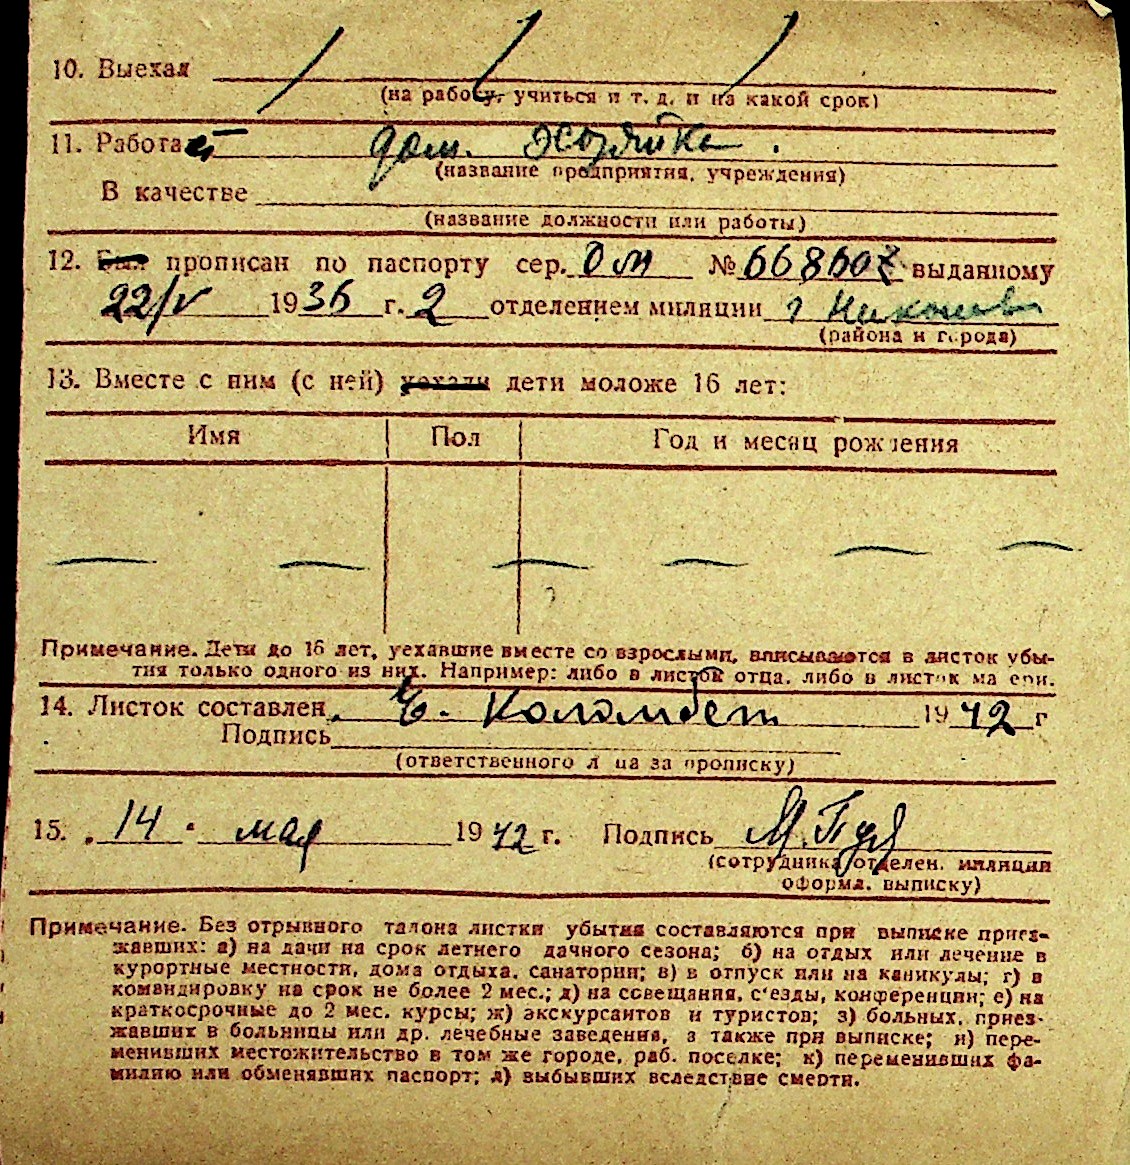 10. Выехал
(на работу, учиться и т. д. и на какой срок)
11. Работает дом. хозяйка.
(название предприятия, учреждения)
В качестве
(название должности или работы)
12. Был прописан по паспорту сер. ОМ № 668602 выданному
22/V 1936 г. 2 отделением милиции г
(района и города)
13. Вместе с ним (с ней) уехали дети моложе 16 лет:
Имя Пол Год и месяц рождения
Примечание. Дети до 16 лет, уехавшие вместе со взрослыми, вписываются в листок убы-
тия только одного из них. Например: либо в листок отца, либо в листок матери.
14. Листок составлен Е. Коломбет 1942 г
Подпись
(ответственного лица за прописку)
15. „14" мая 1942 г. Подпись
(сотрудника отделен. милиции
оформл. выписку)
Примечание. Без отрывного талона листки убытия составляются при выписке приез-
жавших: а) на дачи на срок летнего дачного сезона; б) на отдых или лечение в
курортные местности, дома отдыха, санатории; в) в отпуск или на каникулы; г) в
командировку на срок не более 2 мес.; д) на совещания, с'езды, конференции; е) на
краткосрочные до 2 мес. курсы; ж) экскурсантов и туристов; з) больных, приез-
жавших в больницы или др. лечебные заведения, а также при выписке; и) пере-
менивших местожительство в том же городе, раб. поселке; к) переменивших фа-
милию или обменявших паспорт; л) выбывших вследствие смерти.